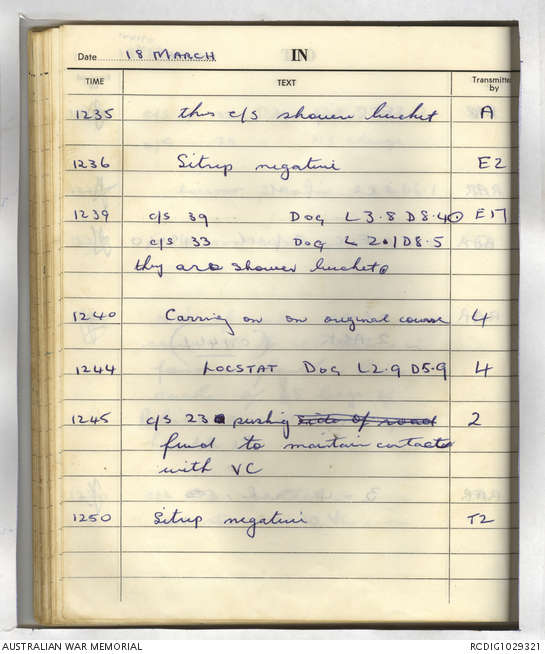 Date 18 MARCH IN
TIME TEXT Transmitted by
1235 this c/s shower bucket A
1236 Sitrep negative E2
1239 c/s 39 Dog L 3.8 D8.4 E17
c/s 33 Dog L 2.1 D8.5
they are shower bucket
1240 Carring on on original course 4
1244 LOCSTAT Dog L2.9 D5.9 4
1245 c/s 23 pushing side of road 2
fwd to maintain contact
with VC
1250 Sitrep negative T2
AUSTRALIAN WAR MEMORIAL RCDIG1029321